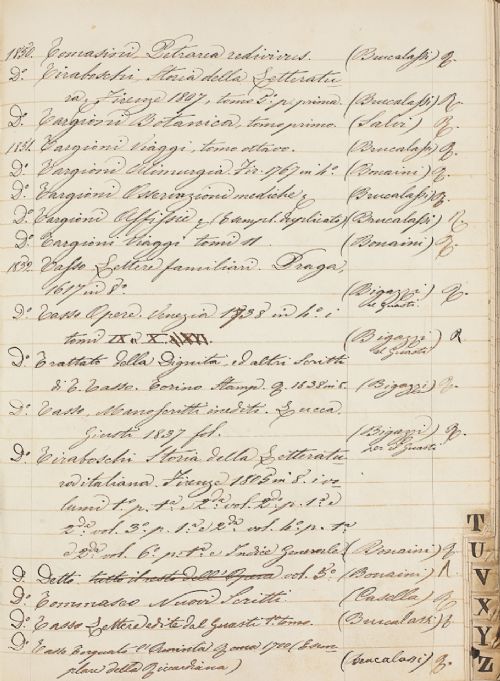 1830. Tomasini, Petrarca redivivus. (Bucalassi) R.
Do. Tiraboschi, Storia della Letteratu=
ra, Firenze 1807, tomo 5o. p. prima. (Bucalassi) R.
Do. Targioni Botanica, tomo primo. (Salvi) R.
1831. Targioni Viaggi, tomo ottavo. (Bucalassi) R.
Do. Targioni Alimurgia Fir. 1767 in 4o. (Bonaini) R.
Do. Targioni Osservazioni mediche (Bucalassi) R.
Do. Targioni (Esempl. duplicato) (Bucalassi) R.
Do. Targioni Viaggi tomi 11 (Bonaini) R.
Tasso Lettere familiari. Praga,
1617 in 8o (Bigazzi R.
pel Guasti)
Do. Tasso Opere, Venezia 1738 in 4o. i
tomi IX e X. (Bigazzi R
pel Guasti)
Do. Trattato della Dignità, ed altri scritti
di T. Tasso. Torino Stamp. R. 1838 in 8. (Bigazzi) R.
Do. Tasso, Manoscritti inediti. Lucca,
Giusti 1837 fol. (Bigazzi R.
pel Guasti)
Do. Tiraboschi Storia della Letteratu=
ra italiana. Firenze 1805 in 8. i vo=
lumi 1o. p. 1a e 2da vol. 2do p. 1a e
2da vol. 3o. p. 1a e 2da vol. 4o. p. 1a
e 2da vol. 6o p. 1a e Indice Generale. (Bonaini) R.
Do. Detto tutto il resto dell'Opera vol. 5o (Bonaini) R
Do. Tommaseo Nuovi Scritti (Casella) R.
Do. Tasso Lettere edite dal Guasti 1o. tomo. (Bucalassi) R.
Do. Tasso Torquato Roma 1700 (Esem
plare della Riccardiana) (Bucalassi) R.
T
U
V
X
Y
Z